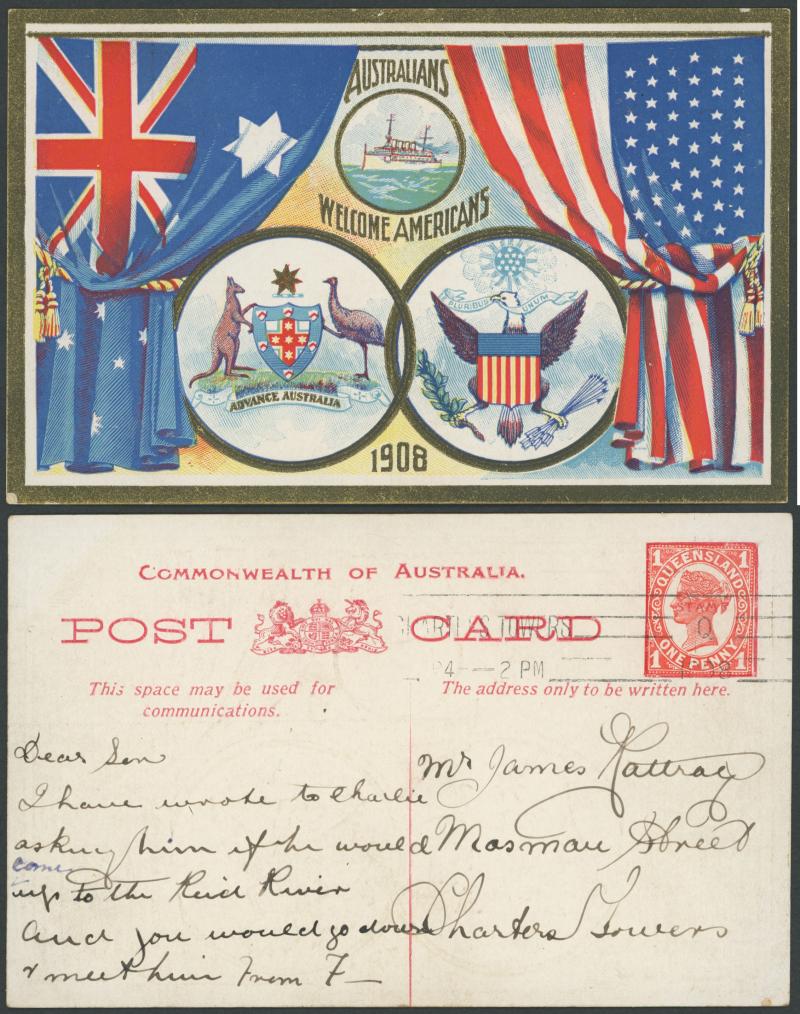 AUSTRALIANS
WELCOME AMERICANS
PLURIBUS UNUM
ADVANCE AUSTRALIA
1908
COMMONWEALTH OF AUSTRALIA.
POST CARD
CHARTERS TOWERS
2 PM
1 QUEENSLAND 1
STAMP
1 ONE PENNY 1
This space may be used for
communications.
The address only to be written here.
Dear Son
I have wrote to Charlie
asking him if he would
come
up to the Reid River
and you would go down
& meet him From F—
Mr James Rattray
Mosman Street
Charters Towers